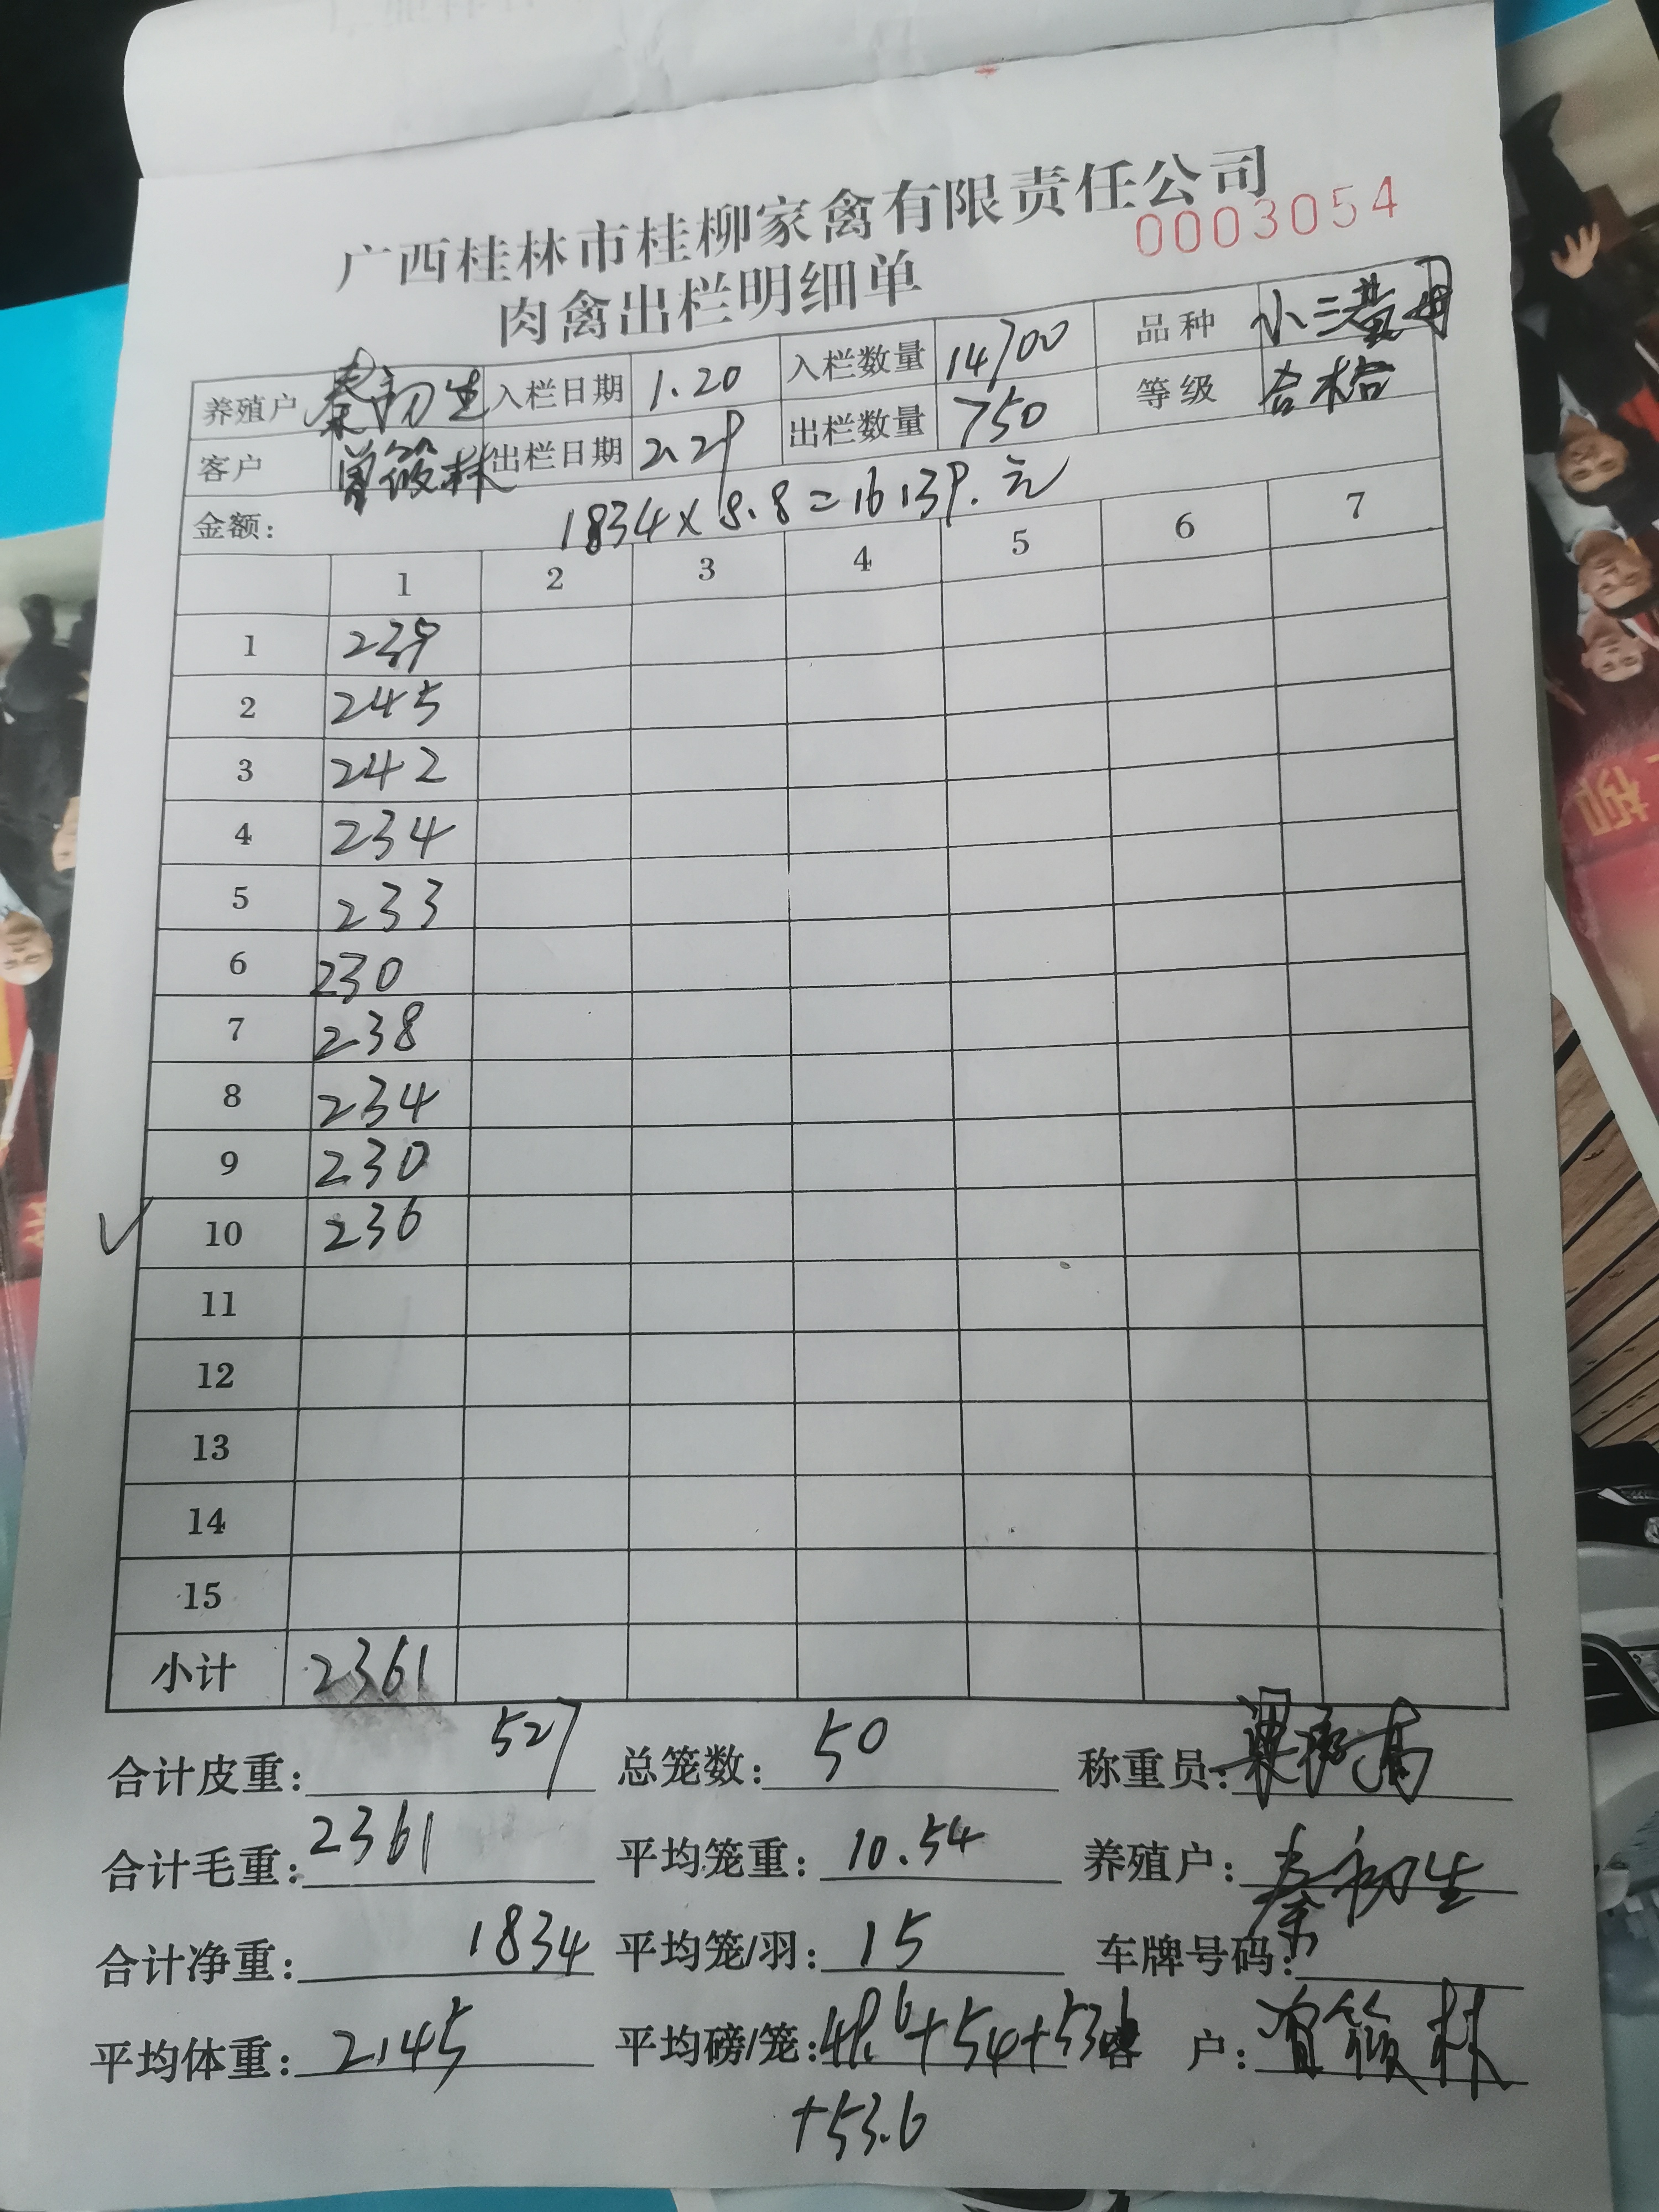 广西桂林市桂柳家禽有限责任公司
0003054
肉禽出栏明细单
养殖户 秦初生 入栏日期 1.20 入栏数量 14700 品种 小三黄母
客户 曾筱林 出栏日期 2.29 出栏数量 750 等级 合格
金额: 1834×8.8=16139.元
1 2 3 4 5 6 7
1 239
2 245
3 242
4 234
5 233
6 230
7 238
8 234
9 230
10 236
11
12
13
14
15
小计 2361
合计皮重: 527 总笼数: 50 称重员:
合计毛重: 2361 平均笼重: 10.54 养殖户: 秦初生
合计净重: 1834 平均笼/羽: 15 车牌号码:
平均体重: 2.445 平均磅/笼: 客 户: 曾筱林
+53.6